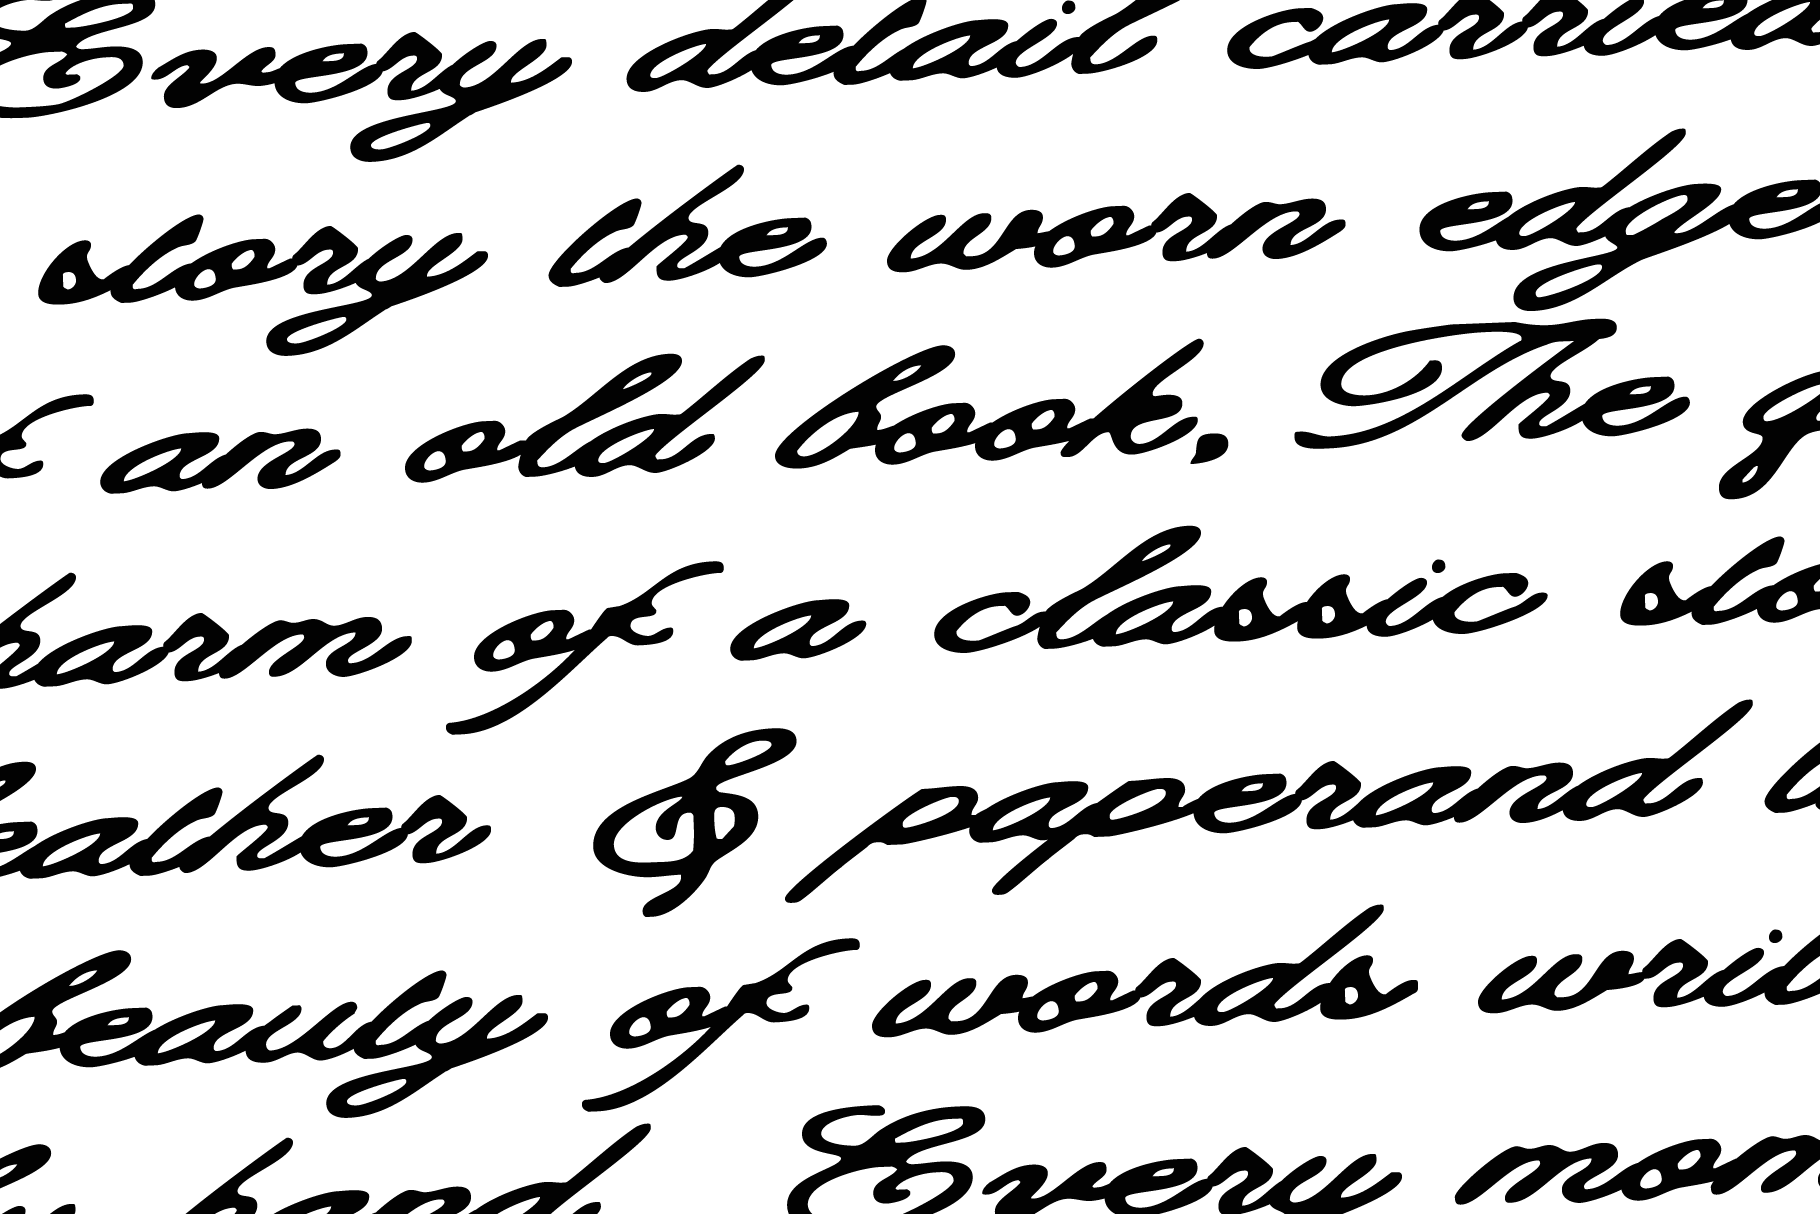 Every detail carried
story the worn edge
of an old book, The g
harm of a classic sto
eather & paperand w
beauty of words writ
by hand Every mom